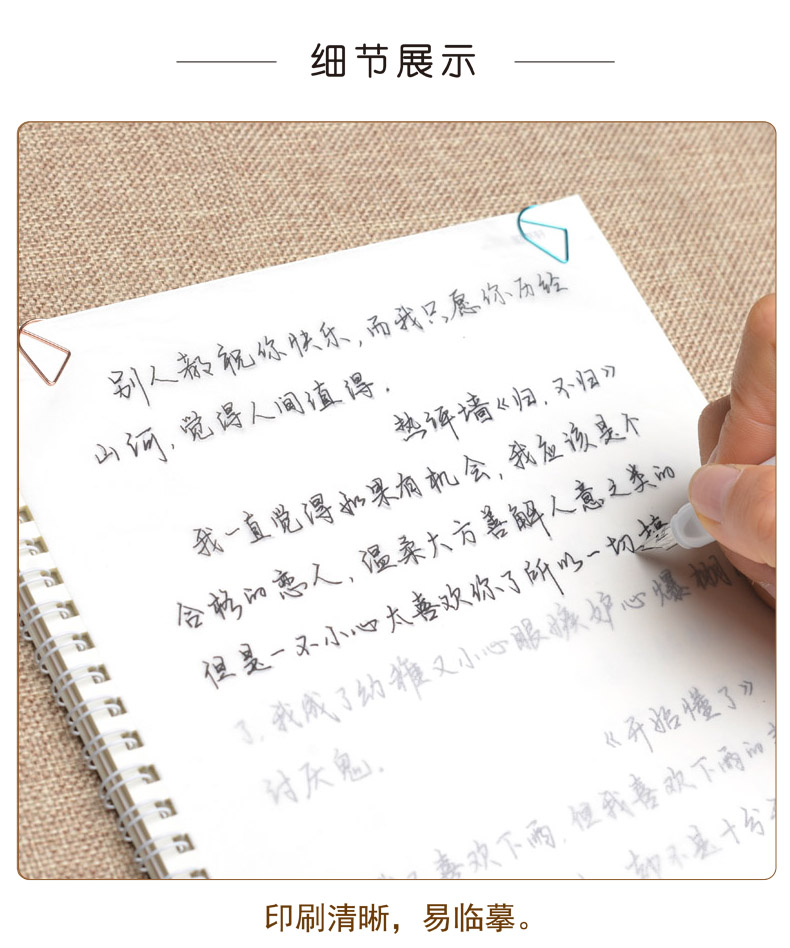 细节展示
别人都祝你快乐,而我只愿你历经
山河,觉得人间值得.
热评墙《归,不归》
我一直觉得如果有机会,我应该是个
合格的恋人,温柔大方善解人意之类的
但是一不小心太喜欢你了所以一切搞
了,我成了幼稚又小心眼嫉妒心爆棚
讨厌鬼.
《开始懂了》
喜欢下雨,但我喜欢下雨的
都不是十分
印刷清晰，易临摹。